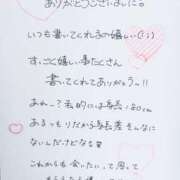 ありがとうございました。
いつも書いてくれるの嬉しい(:3)
すっごく嬉しい事たくさん
書いてくれてありがとう!!
あれって私的には身長180cm
あるつもりだから身長差そんなに
ないんだけどなぁ
これからも会いたいって思って